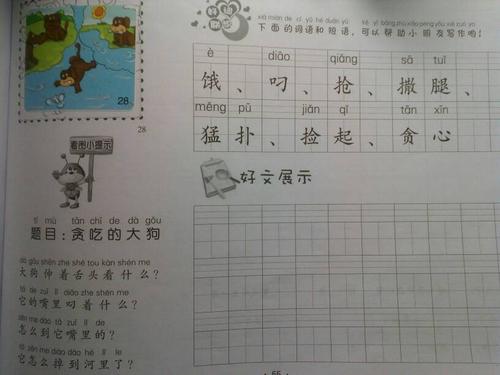 28
28
看图小提示
tí mù tān chī de dà gǒu
题目：贪吃的大狗
dà gǒu shēn zhe shé tou kàn shén me
大狗伸着舌头看什么？
tā de zuǐ lǐ diāo zhe shén me
它的嘴里叼着什么？
zěn me dào tā zuǐ lǐ de
怎么到它嘴里的？
tā zěn me diào dào hé lǐ le
它怎么掉到河里了？
xià miàn de cí yǔ hé duǎn yǔ kě yǐ bāng zhù xiǎo péng yǒu xiě zuò yo
下面的词语和短语，可以帮助小朋友写作哟！
è diāo qiǎng sā tuǐ
饿、叼、抢、撒腿、
měng pū jiǎn qǐ tān xīn
猛扑、捡起、贪心
好文展示
· 66 ·